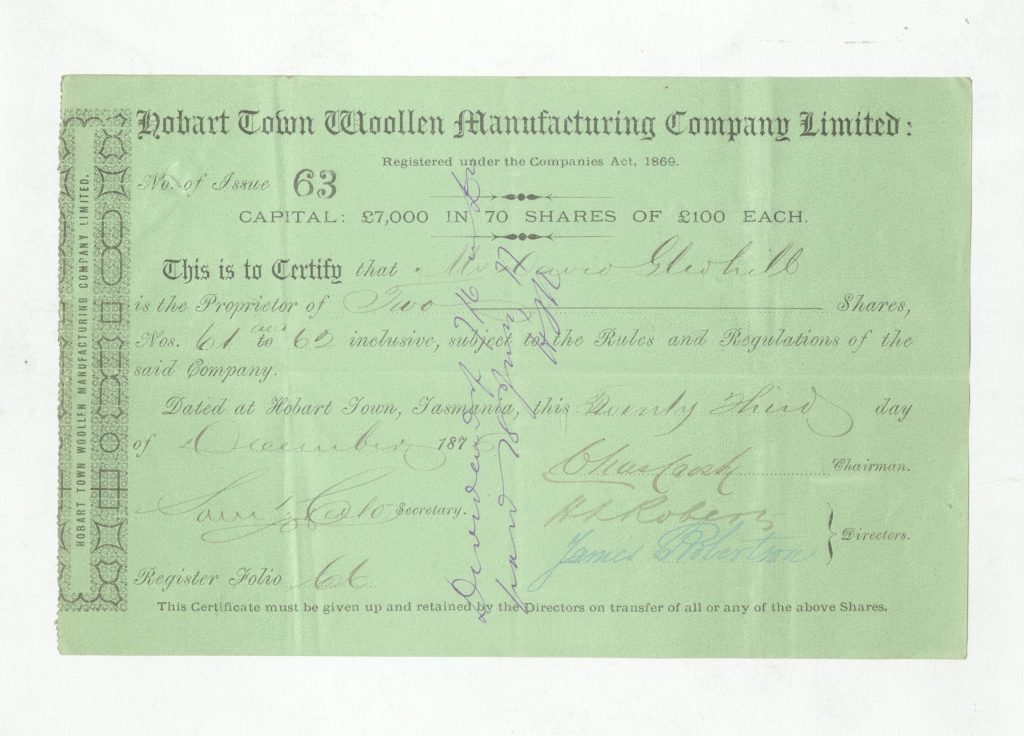 Hobart Town Woollen Manufacturing Company Limited:
Registered under the Companies Act, 1869.
No. of Issue 63
CAPITAL: £7,000 IN 70 SHARES OF £100 EACH.
This is to Certify that Mr David Gledhill
is the Proprietor of Two Shares,
Nos. 61 and to 62 inclusive, subject to the Rules and Regulations of the
said Company.
Dated at Hobart Town, Tasmania, this Twenty Third day
of December 187
Chairman.
Secretary.
H L Roberts
James Robertson
Directors.
Register Folio 66
This Certificate must be given up and retained by the Directors on transfer of all or any of the above Shares.
HOBART TOWN WOOLLEN MANUFACTURING COMPANY LIMITED.
Dividend of
paid